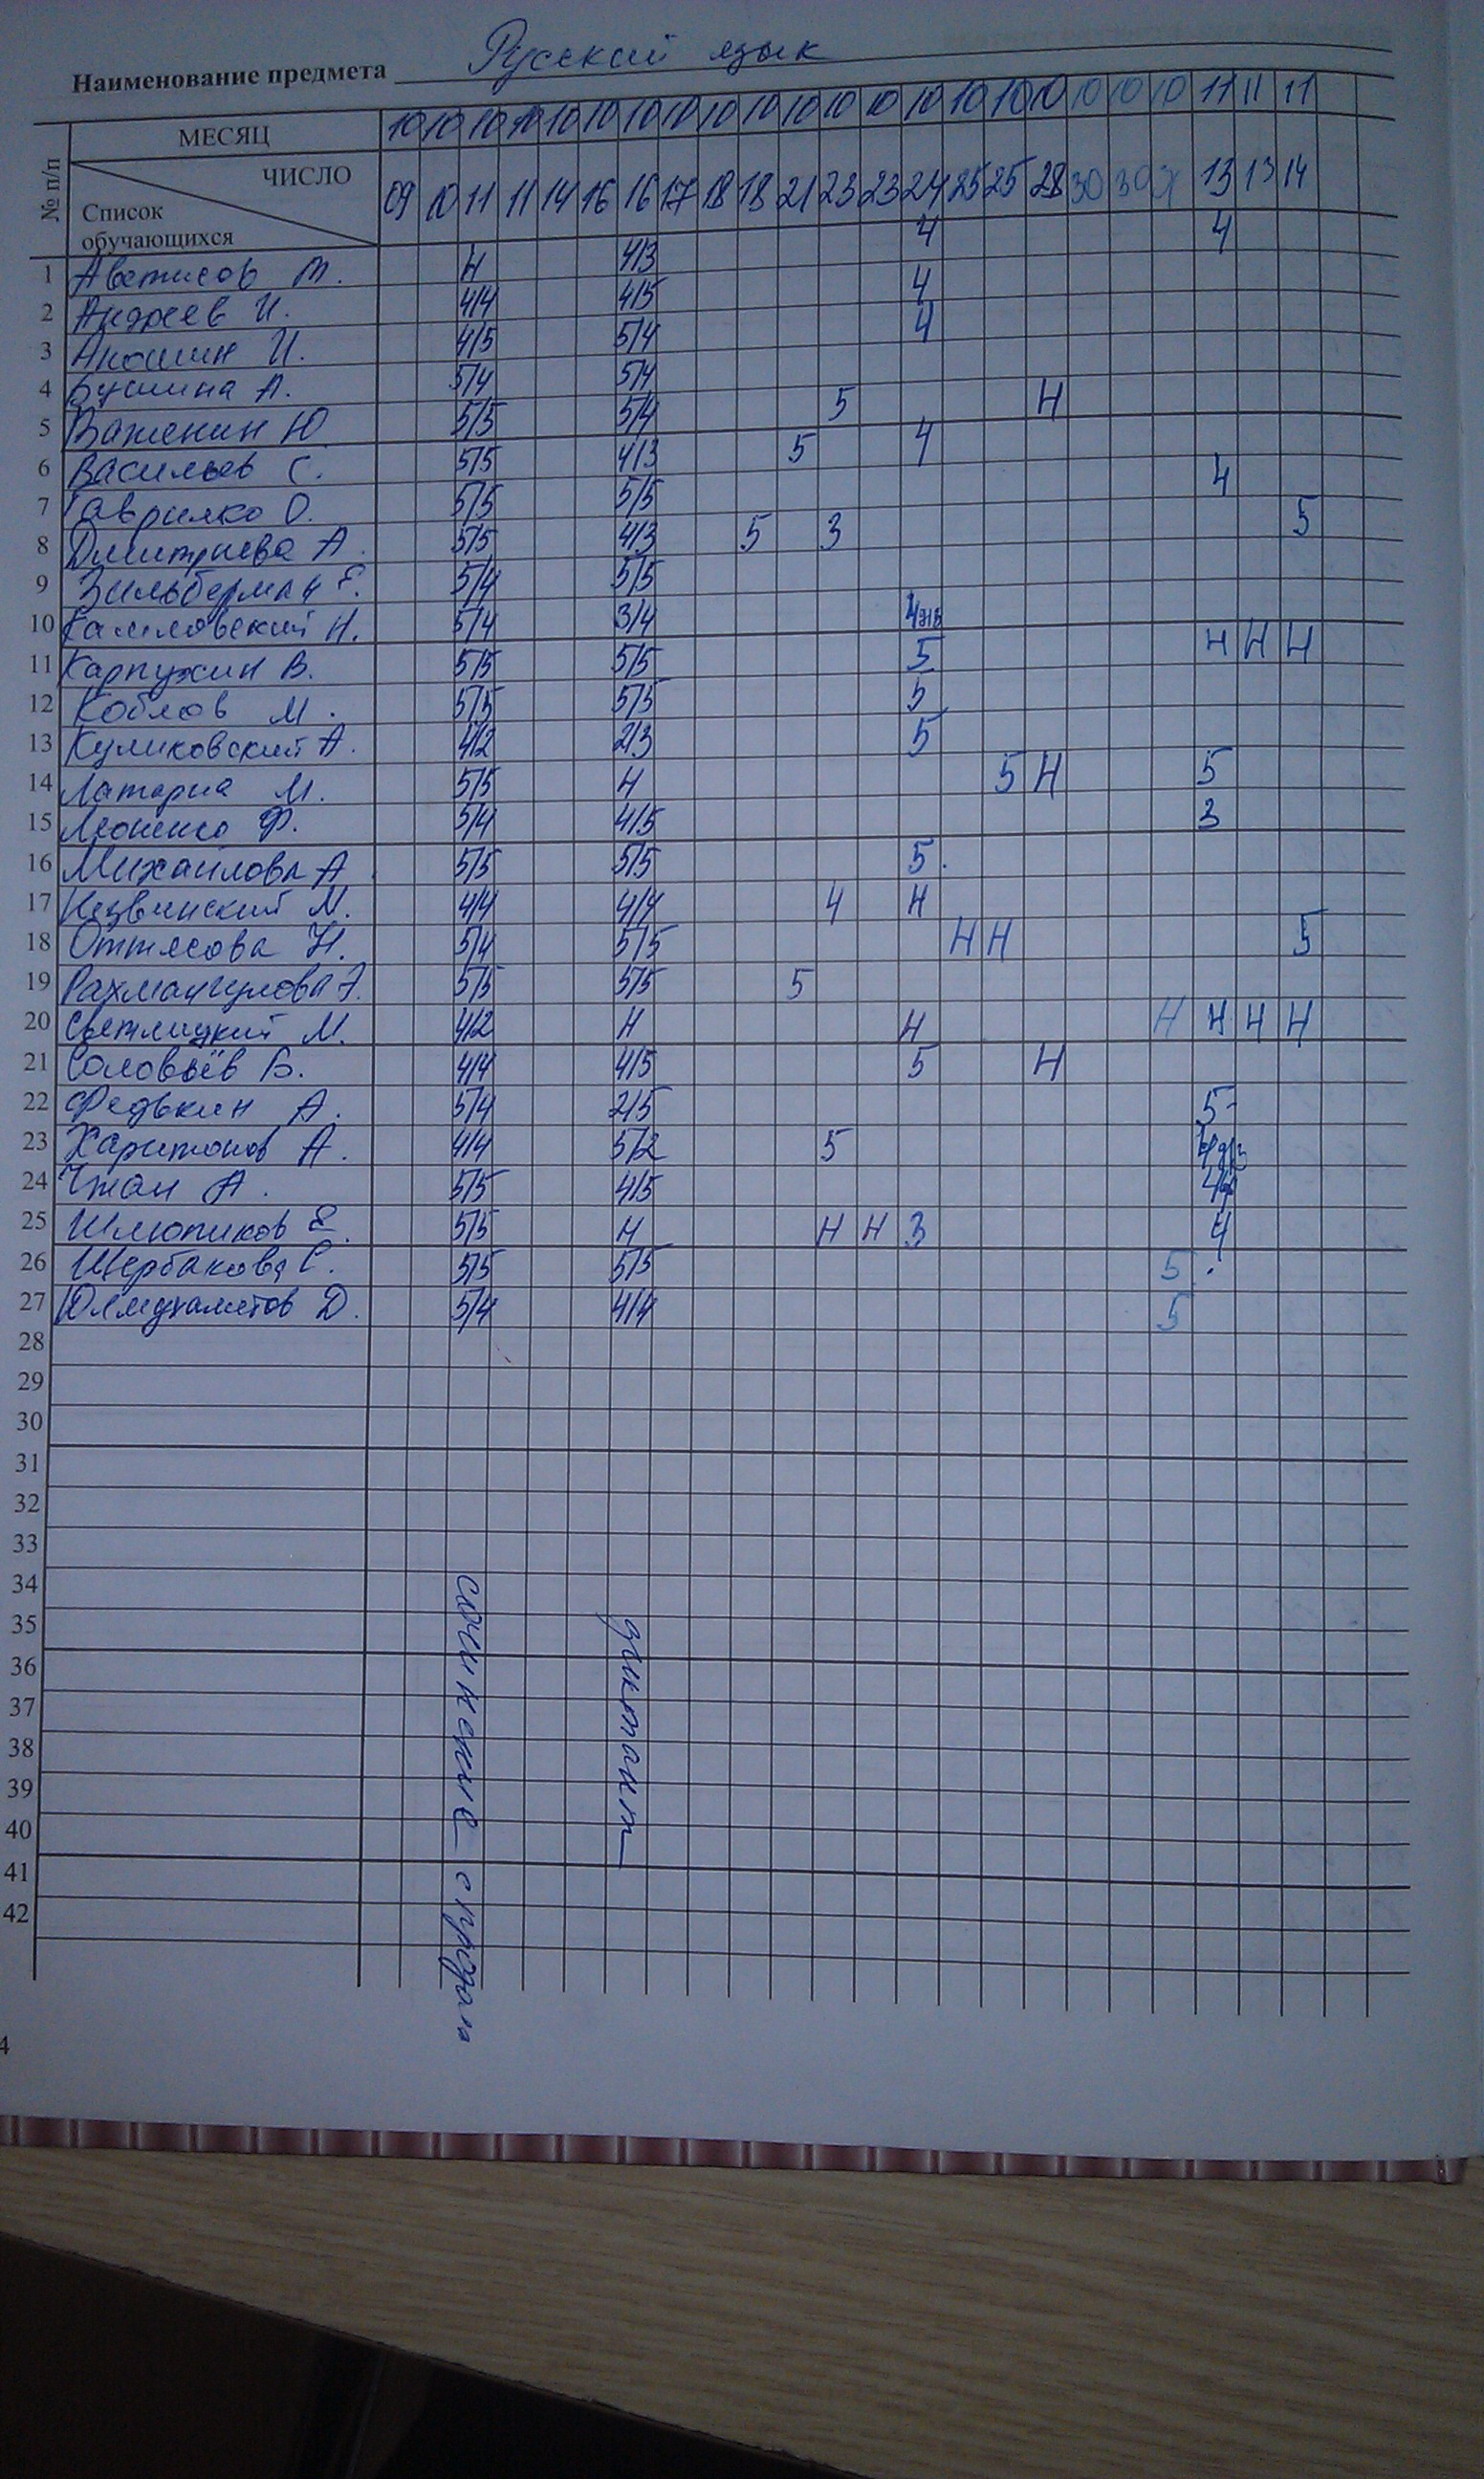 Наименование предмета Русский язык
№ п/п МЕСЯЦ 10 10 10 10 10 10 10 10 10 10 10 10 10 10 10 10 10 10 10 10 11 11 11
ЧИСЛО 09 10 11 11 14 16 16 17 18 18 21 23 23 24 25 25 28 30 30 13 13 14
Список
обучающихся
1 Аветисов Т. Н 4/3 4 4
2 Андреев И. 4/4 4/5 4
3 Аношин И. 4/5 5/4 4
4 Бушина А. 5/4 5/4
5 Важенин Ю. 5/5 5/4 5 Н
6 Васильев С. 5/5 4/3 5 4
7 Гаврилко О. 5/5 5/5 4
8 Дмитриева А. 5/5 4/3 5 3 5
9 Зильберман Е. 5/4 5/5
10 Камловский Н. 5/4 3/4 4
11 Карпухин В. 5/5 5/5 5 Н Н Н
12 Коблов М. 5/5 5/5 5
13 Куликовский А. 4/2 2/3 5
14 Латария М. 5/5 Н 5 Н 5
15 Ф. 5/4 4/5 3
16 Михайлова А 5/5 5/5 5.
17 Незвинский М. 4/4 4/4 4 Н
18 Оттясова Н. 5/4 5/5 Н Н 5
19 Рахмангулова 5/5 5/5 5
20 Светлицкий М. 4/2 Н Н Н Н Н Н
21 Соловьёв Б. 4/4 4/5 5 Н
22 Федькин А. 5/4 2/5 5-
23 Харитонов А. 4/4 5/2 5
24 Чжан А. 5/5 4/5
25 Шлюпиков Е. 5/5 Н Н Н 3 4
26 Щербакова С. 5/5 5/5 5 .
27 Юлмухаметов Д. 5/4 4/4 5
28
29
30
31
32
33
34
35
36
37
38
39
40
41
42
сочинение
диктант
4